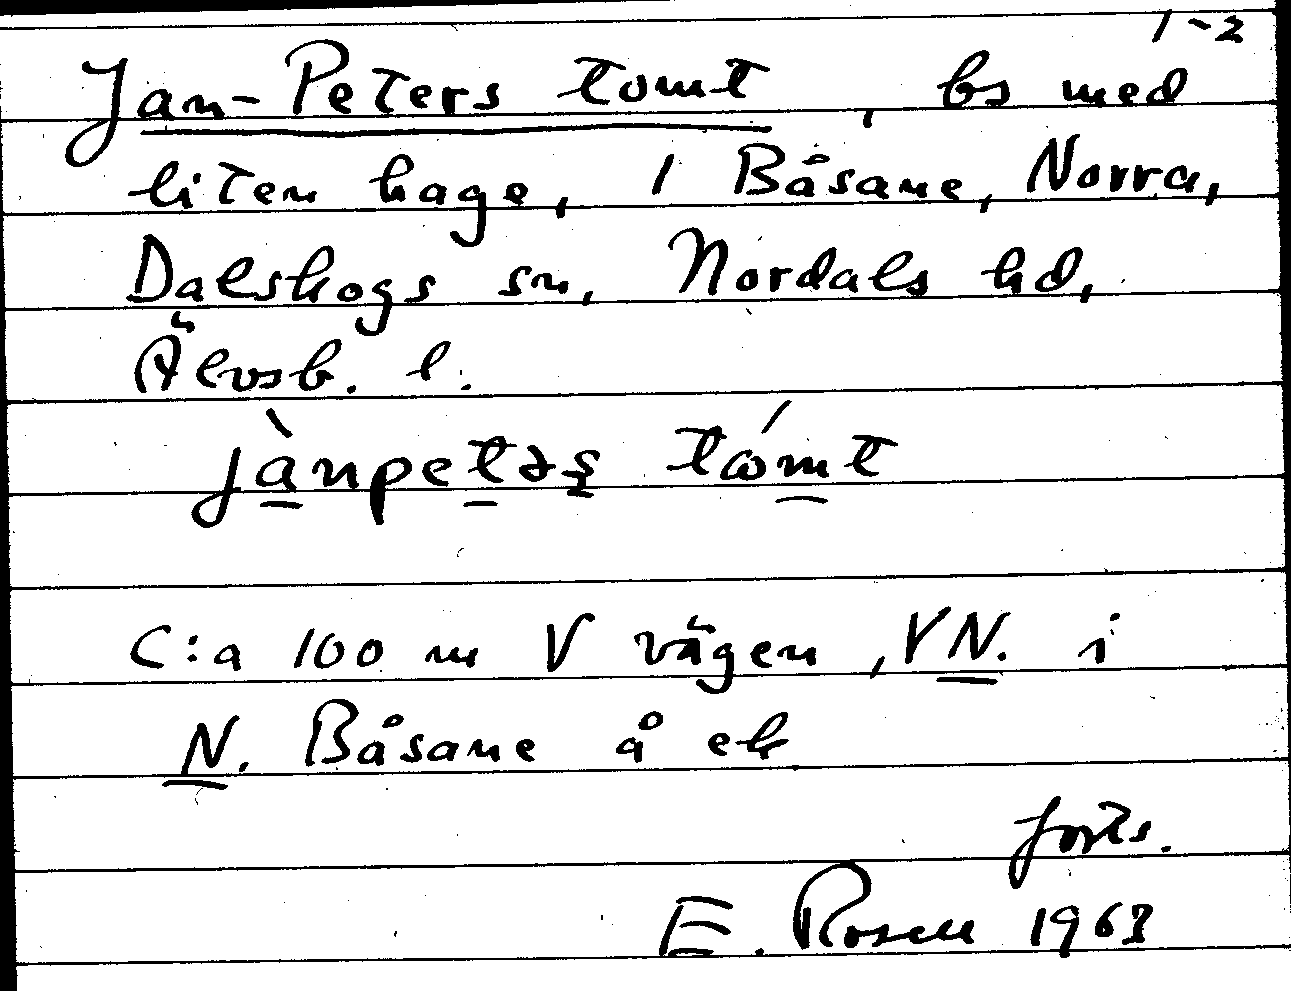 1-2
Jan-Peters tomt, bs med
liten hage, 1 Båsane, Norra,
Dalskogs sn, Nordals hd,
Älvsb. l.
jànpetəş tómt
C:a 100 m V vägen, VN. i
N. Båsane å ek
forts.
E. Rosell